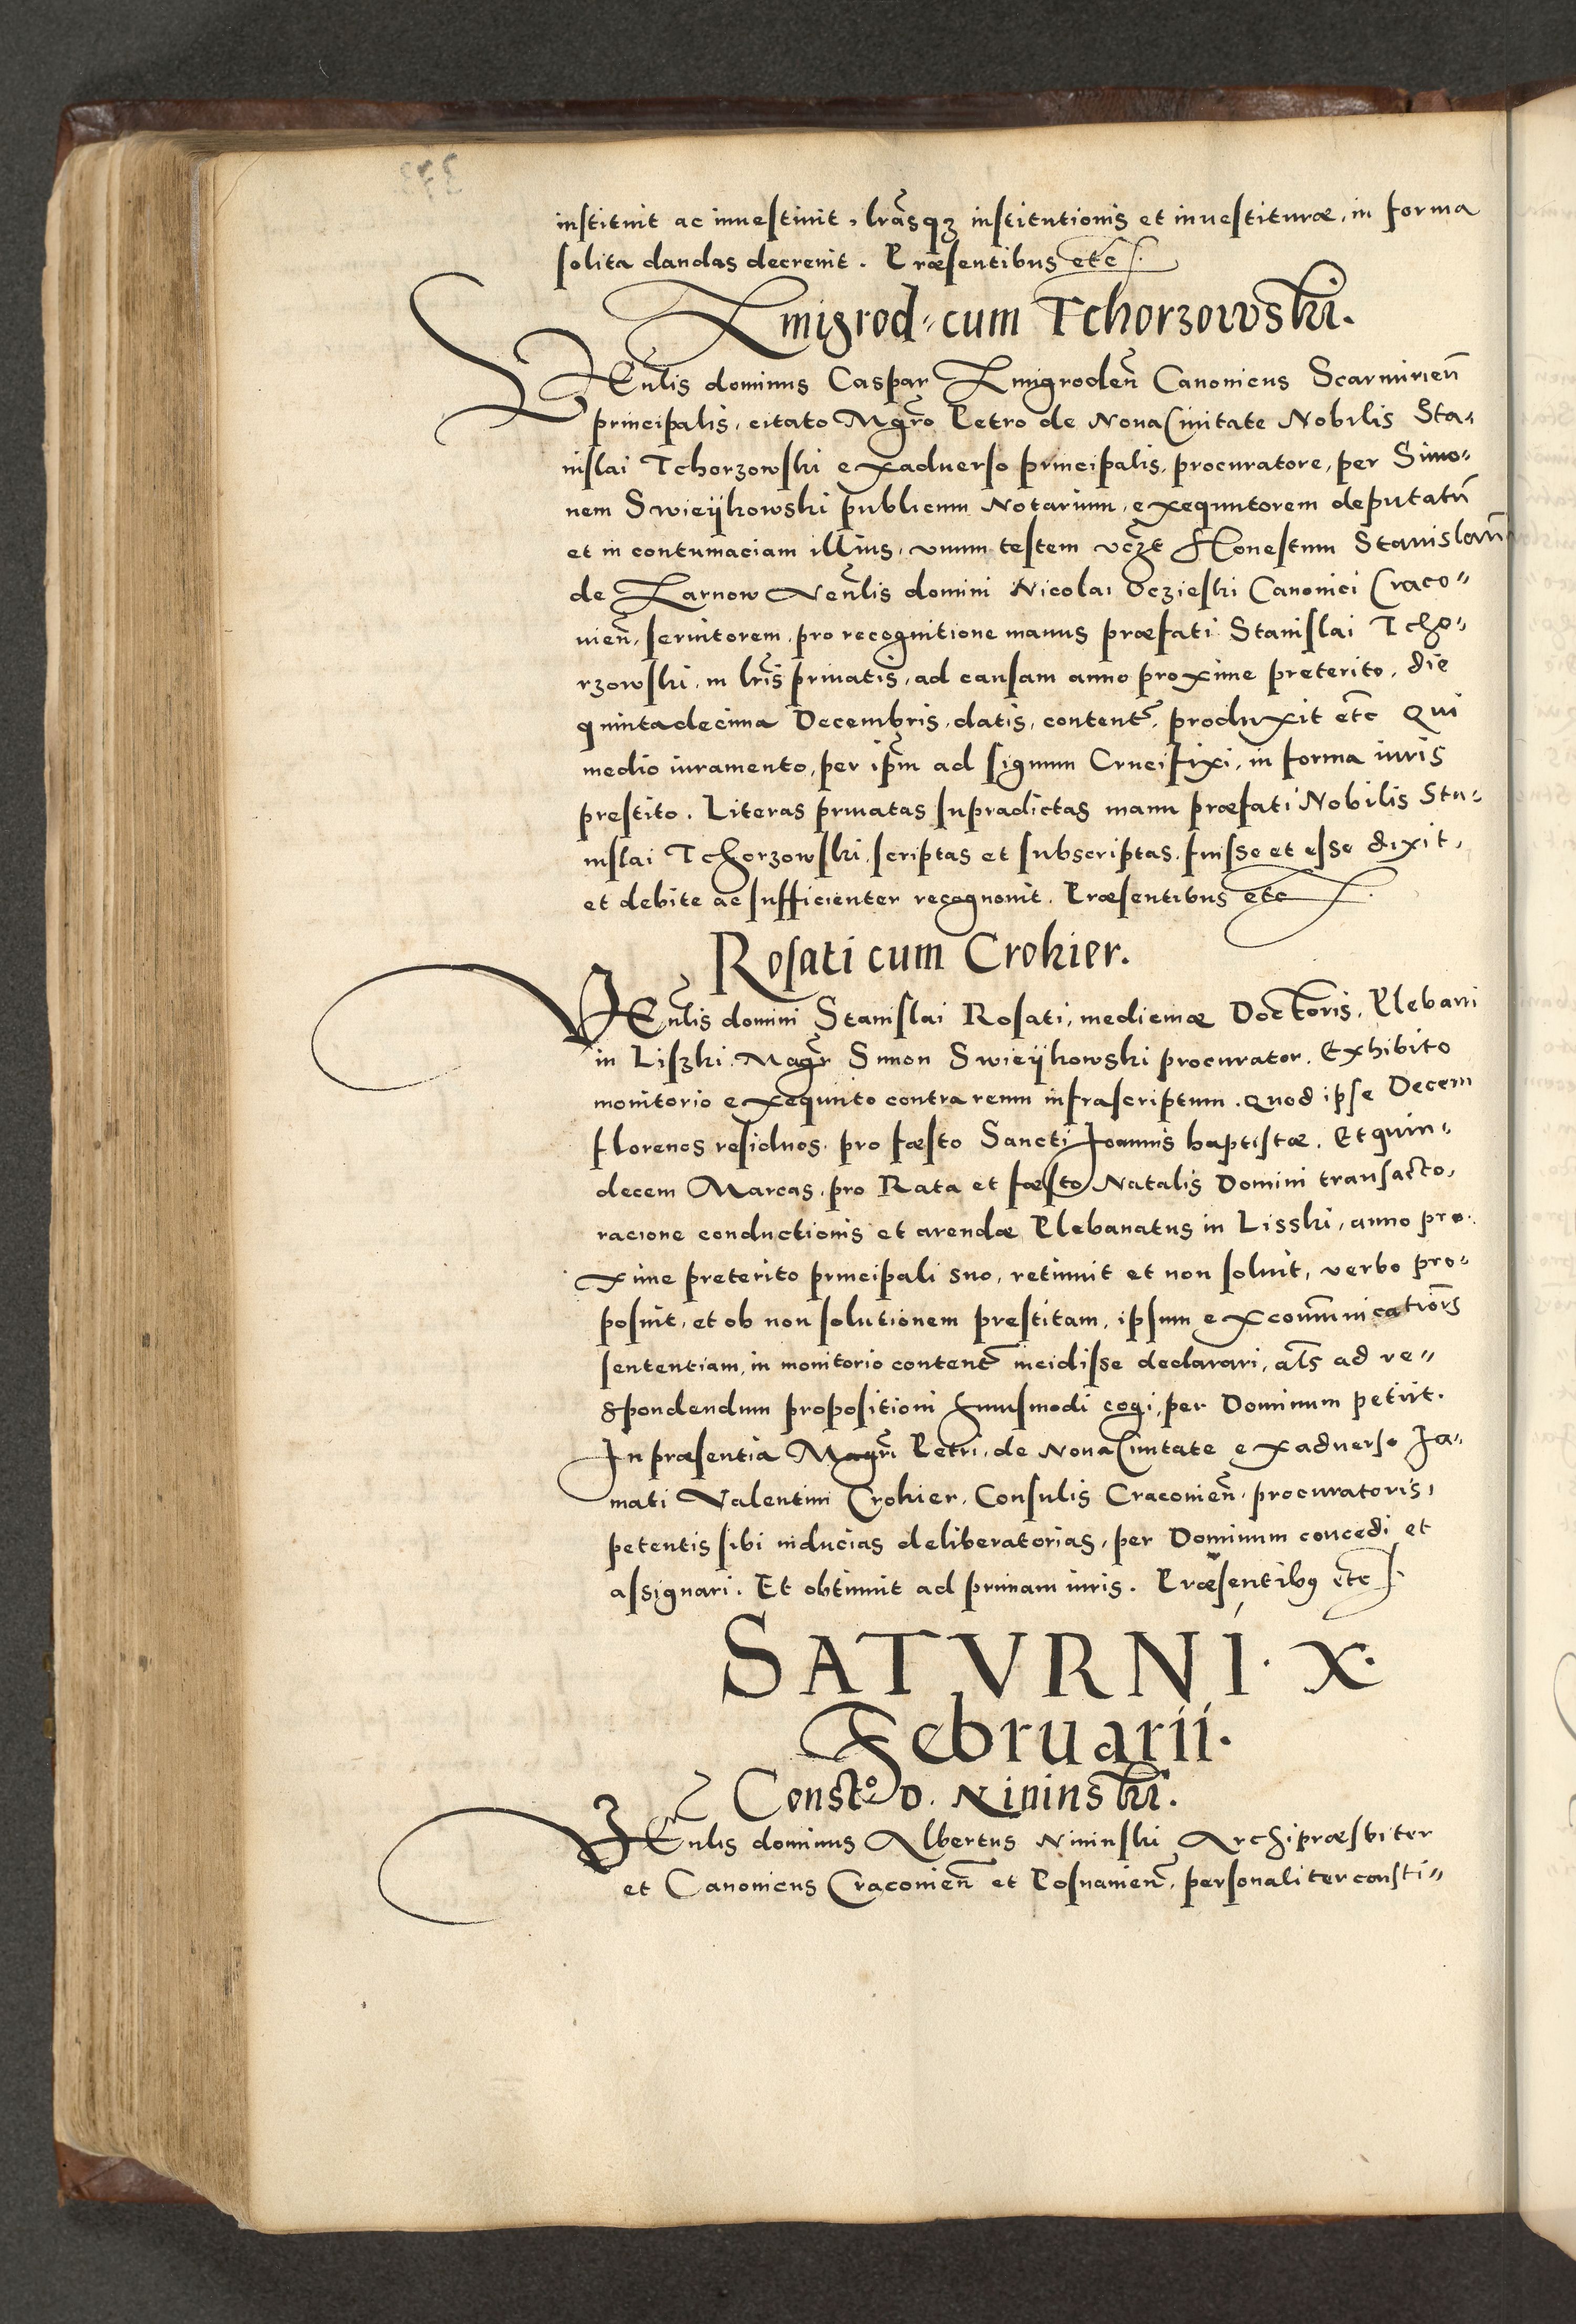 instituit ac inuestiuit, lrãsqꝫ institutionis et inuestituræ, in forma
solita dandas decreuit. Præsentibus etc
Zmigrod: cum Tchorzowski.
VEnlis dominus Caspar Zmigrodeñ Canonicus Scarmirieñ
principalis, citato Mgrõ Petro de Noua Ciuitate Nobilis Sta:
nislai Tchorzowski exaduerso principalis, procuratore, per Simo:
nem Swieÿkowski publicum Notarium, exequutorem deputatũ
et in contumaciam illius, vnum testem vczt Honestum Stanislaum
de Zarnow Venlis domini Nicolai Oczieski Canonici Craco:
uieñ, seruitorem, pro recognitione manus præfati Stanislai Tcho:
rzowski, in lrĩs priuatis, ad causam anno proxime preterito, die
quintadecima Decembris, datis, content, produxit etc Qui
medio iuramento, per ipm̃ ad signum Crucifixi, in forma iuris
prestito. Literas priuatas supradictas manu præfati Nobilis Sta:
nislai Tchorzowski, scriptas et subscriptas, fuisse et esse dixit,
et debite ac sufficienter recognouit. Præsentibus etc
Rosati cum Crokier.
VEnlis domini Stanislai Rosati, medicinæ Doctoris, Plebani
in Liszki, Magr Simon Swieÿkowski procurator. Exhibito
monitorio exequuto contra reum infrascriptum. Quod ipse Decem
florenos residuos, pro fæsto Sancti Joannis baptistæ. Et quin:
decem Marcas, pro Rata et fæsto Natalis Domini transacto,
racione conductionis et arendæ Plebanatus in Lisski, anno pro:
xime preterito principali suo, retinuit et non soluit, verbo pro:
posuit, et ob non solutionem prestitam, ipsum excom̃unicatiõis
sententiam, in monitorio content incidisse declarari, als ad re:
spondendum propositioni huiusmodi cogi, per Dominum petiit.
In præsentia Magri Petri, de Noua Ciuitate exaduerso Fa:
mati Valentini Crokier, Consulis Cracouieñ, procuratoris,
petentis sibi inducias deliberatorias, per Dominum concedi et
assignari. Et obtinuit ad primam iuris. Præsentibꝰ etc
SATVRNÍ. X.
Februarii.
Const.º D. Nininski.
VEnlis dominus Albertus Nininski Archipræsbiter
et Canonicus Cracouieñ et Posnanieñ, personaliter consti: